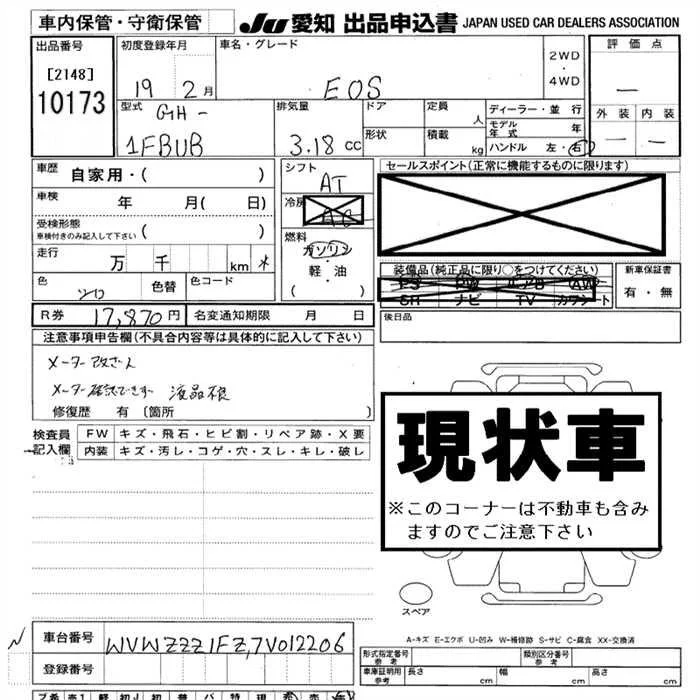 車内保管・守衛保管
JU 愛知 出品申込書 JAPAN USED CAR DEALERS ASSOCIATION
出品番号
[2148]
10173
初度登録年月
19 年 2 月
車名・グレード
EOS
2WD
・
4WD
評価点
—
外装 内装
— —
型式
GH-
1FBUB
排気量
3.18 CC
ドア
形状
定員 人
積載 kg
ディーラー・並行
モデル年式 年
ハンドル 左・右
車歴 自家用・( )
車検 年 月( 日)
受検形態
車検付きのみ記入して下さい ( )
走行 万 千 km *
色 シロ 色替 色コード
シフト
AT
冷房
AC
燃料
ガソリン
・
軽・油
( )
セールスポイント(正常に機能するものに限ります)
装備品(純正品に限り○をつけてください)
PS PW エアB AW
SR ナビ TV カワシート
新車保証書
有・無
R券 17,870円 名変通知期限 月 日
後日品
注意事項申告欄(不具合内容等は具体的に記入して下さい)
メーター改ざん
メーター確認できず 液晶不良
修復歴 有 〔箇所 〕
検査員
記入欄
FW キズ・飛石・ヒビ割・リペア跡・X要
内装 キズ・汚レ・コゲ・穴・スレ・キレ・破レ
現状車
※このコーナーは不動車も含み
ますのでご注意下さい
スペア
A-キズ E-エクボ U-凹み W-補修跡 S-サビ C-腐食 XX-交換済
車台番号 WVWZZZ1FZ7V012206
登録番号
形式指定番号
参考
類別区分番号
参考
車庫証明用
参考
長さ 幅 高さ
cm cm cm